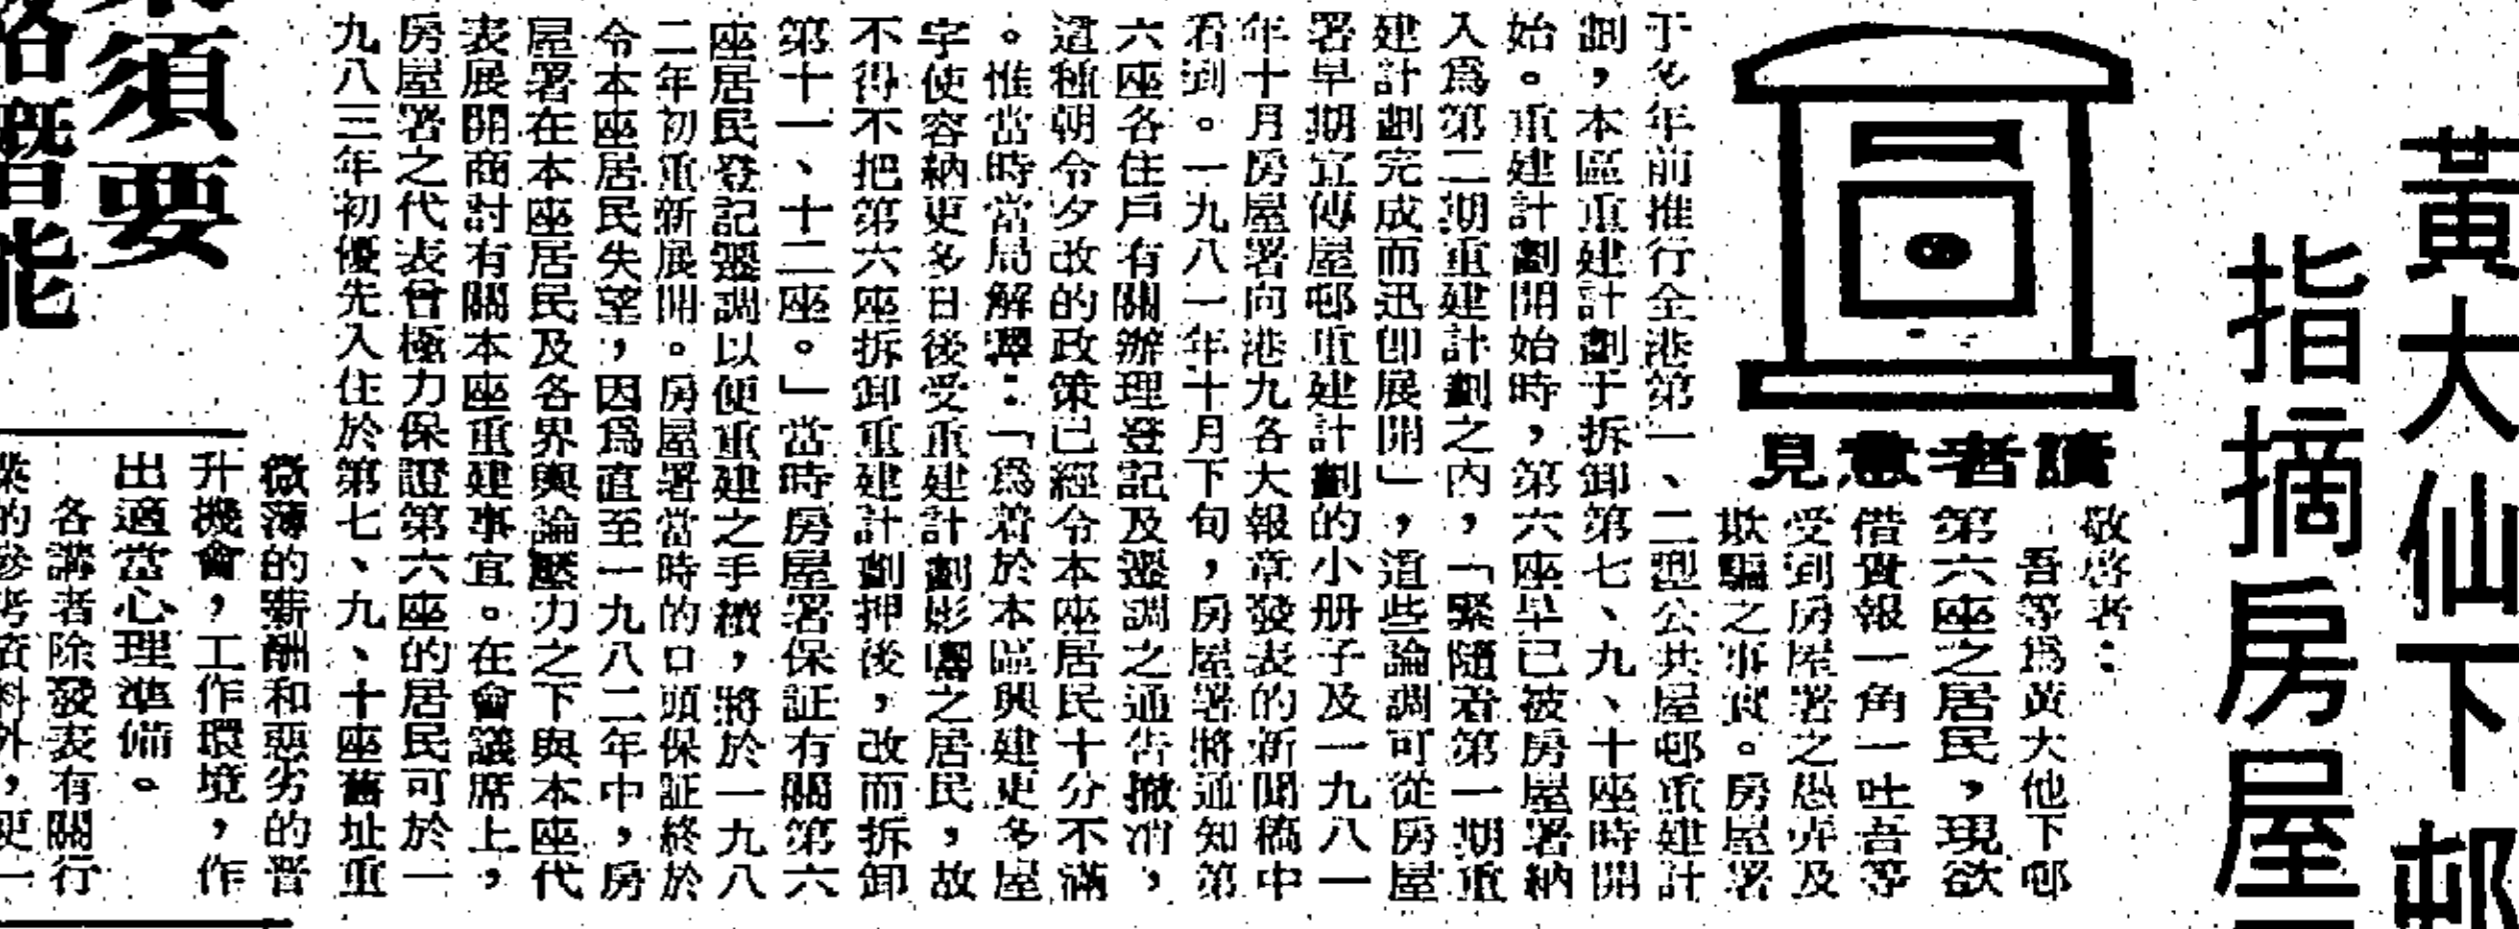 黃大仙下邨
指摘房屋
讀者意見
敬啓者：
吾等爲黃大他下邨
第六座之居民，現欲
借貴報一角一吐吾等
受到房屋署之愚弄及
欺騙之事實。房屋署
于多年前推行全港第一、二型公共屋邨重建計
劃，本區重建計劃于拆卸第七、九、十座時開
始。重建計劃開始時，第六座早已被房屋署納
入爲第二期重建計劃之內，「緊隨着第一期重
建計劃完成而迅即展開」，這些論調可從房屋
署早期宣傳屋邨重建計劃的小册子及一九八一
年十月房屋署向港九各大報章發表的新聞稿中
看到。一九八一年十月下旬，房屋署將通知第
六座各住戶有關辦理登記及遷調之通告撤消，
這種朝令夕改的政策已經令本座居民十分不滿
。惟當時當局解釋：「爲着於本區興建更多屋
宇使容納更多日後受重建計劃影響之居民，故
不得不把第六座拆卸重建計劃押後，改而拆卸
第十一、十二座。」當時房屋署保証有關第六
座居民登記遷調以便重建之手續，將於一九八
二年初重新展開。房屋署當時的口頭保証終於
令本座居民失望，因爲直至一九八二年中，房
屋署在本座居民及各界輿論壓力之下與本座代
表展開商討有關本座重建事宜。在會議席上，
房屋署之代表曾極力保證第六座的居民可於一
九八三年初優先入住於第七、九、十座舊址重
須要
微薄的薪酬和惡劣的晋
升機會，工作環境，作
出適當心理準備。
各講者除發表有關行
業的參考資料外，更一